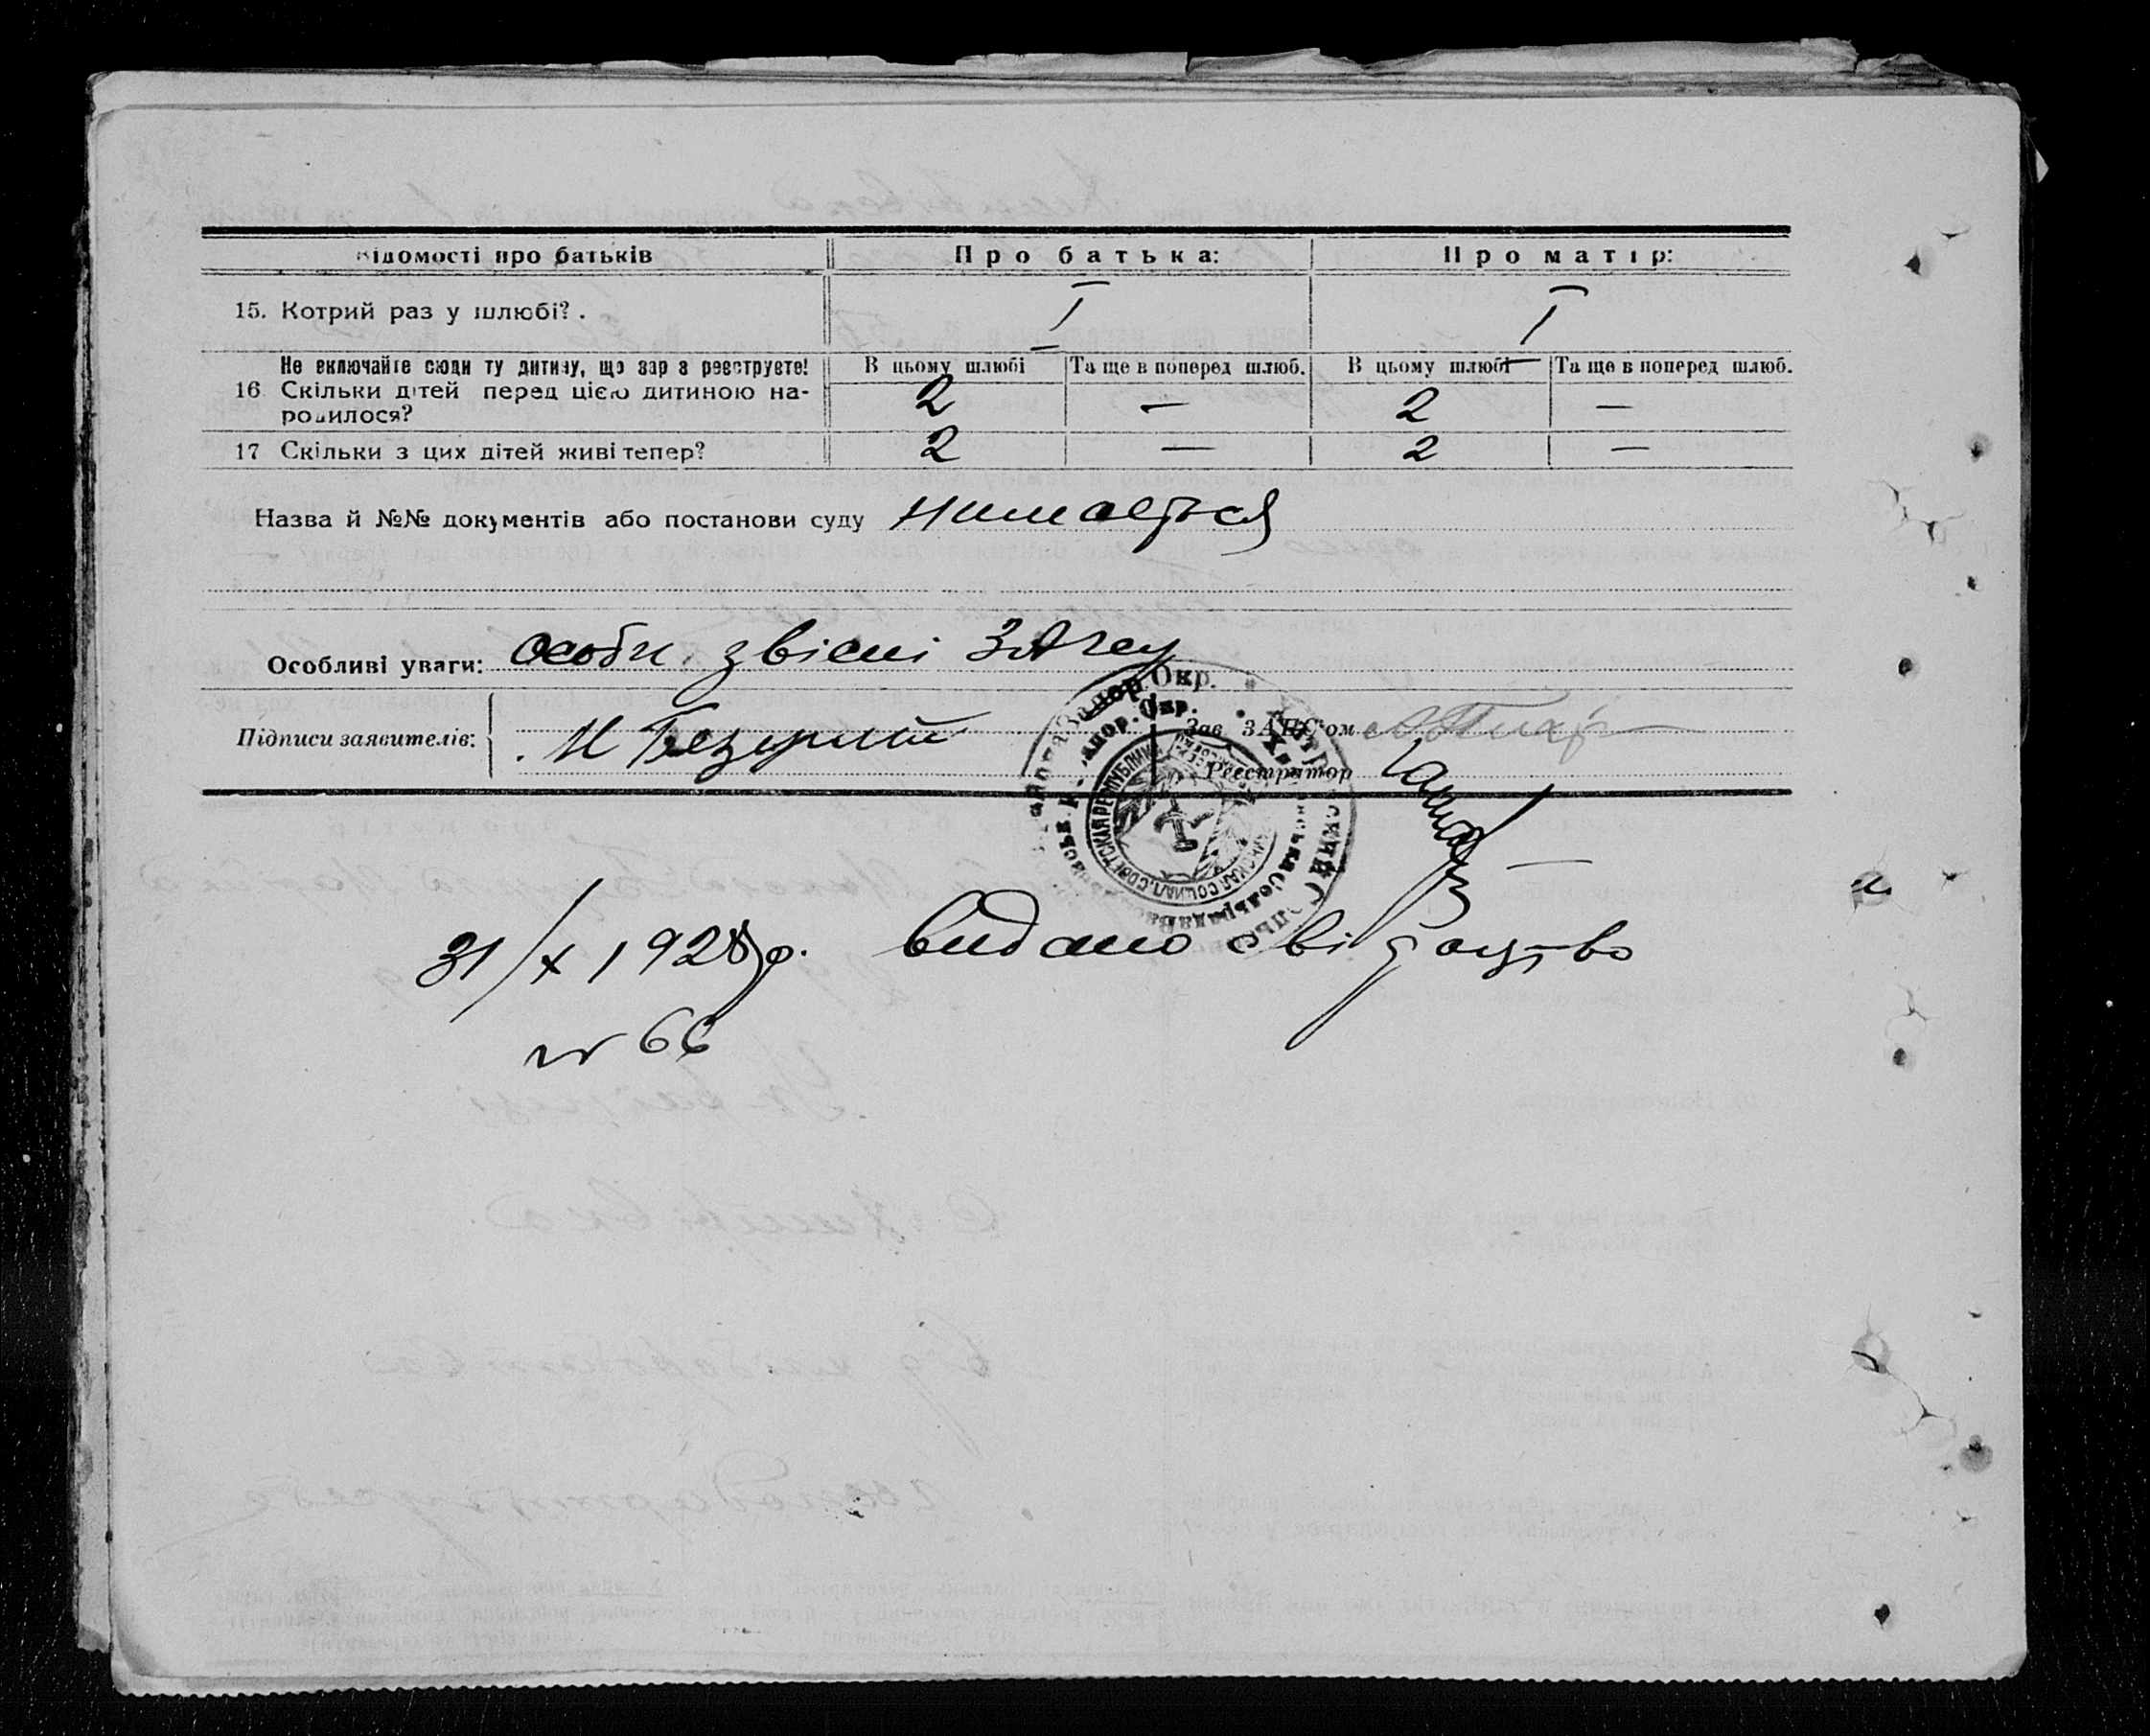 Відомості про батьків
Про батька:
Про матір:
15. Котрий раз у шлюбі? .
I
I
Не включайте сюди ту дитину, що зараз реєструєте!
В цьому шлюбі
Та ще в поперед шлюб.
В цьому шлюбі
Та ще в поперед шлюб.
16 Скільки дітей перед цією дитиною на-
родилося?
2
—
2
—
17 Скільки з цих дітей живі тепер?
2
—
2
—
Назва й №№ документів або постанови суду
Особливі уваги: особи звісні ЗАГСу
Підписи заявителів:
Зав. ЗАГС'ом
Реєстратор
Запор. Окр.
31/X 1928 р. видано свідоцтво
№ 66